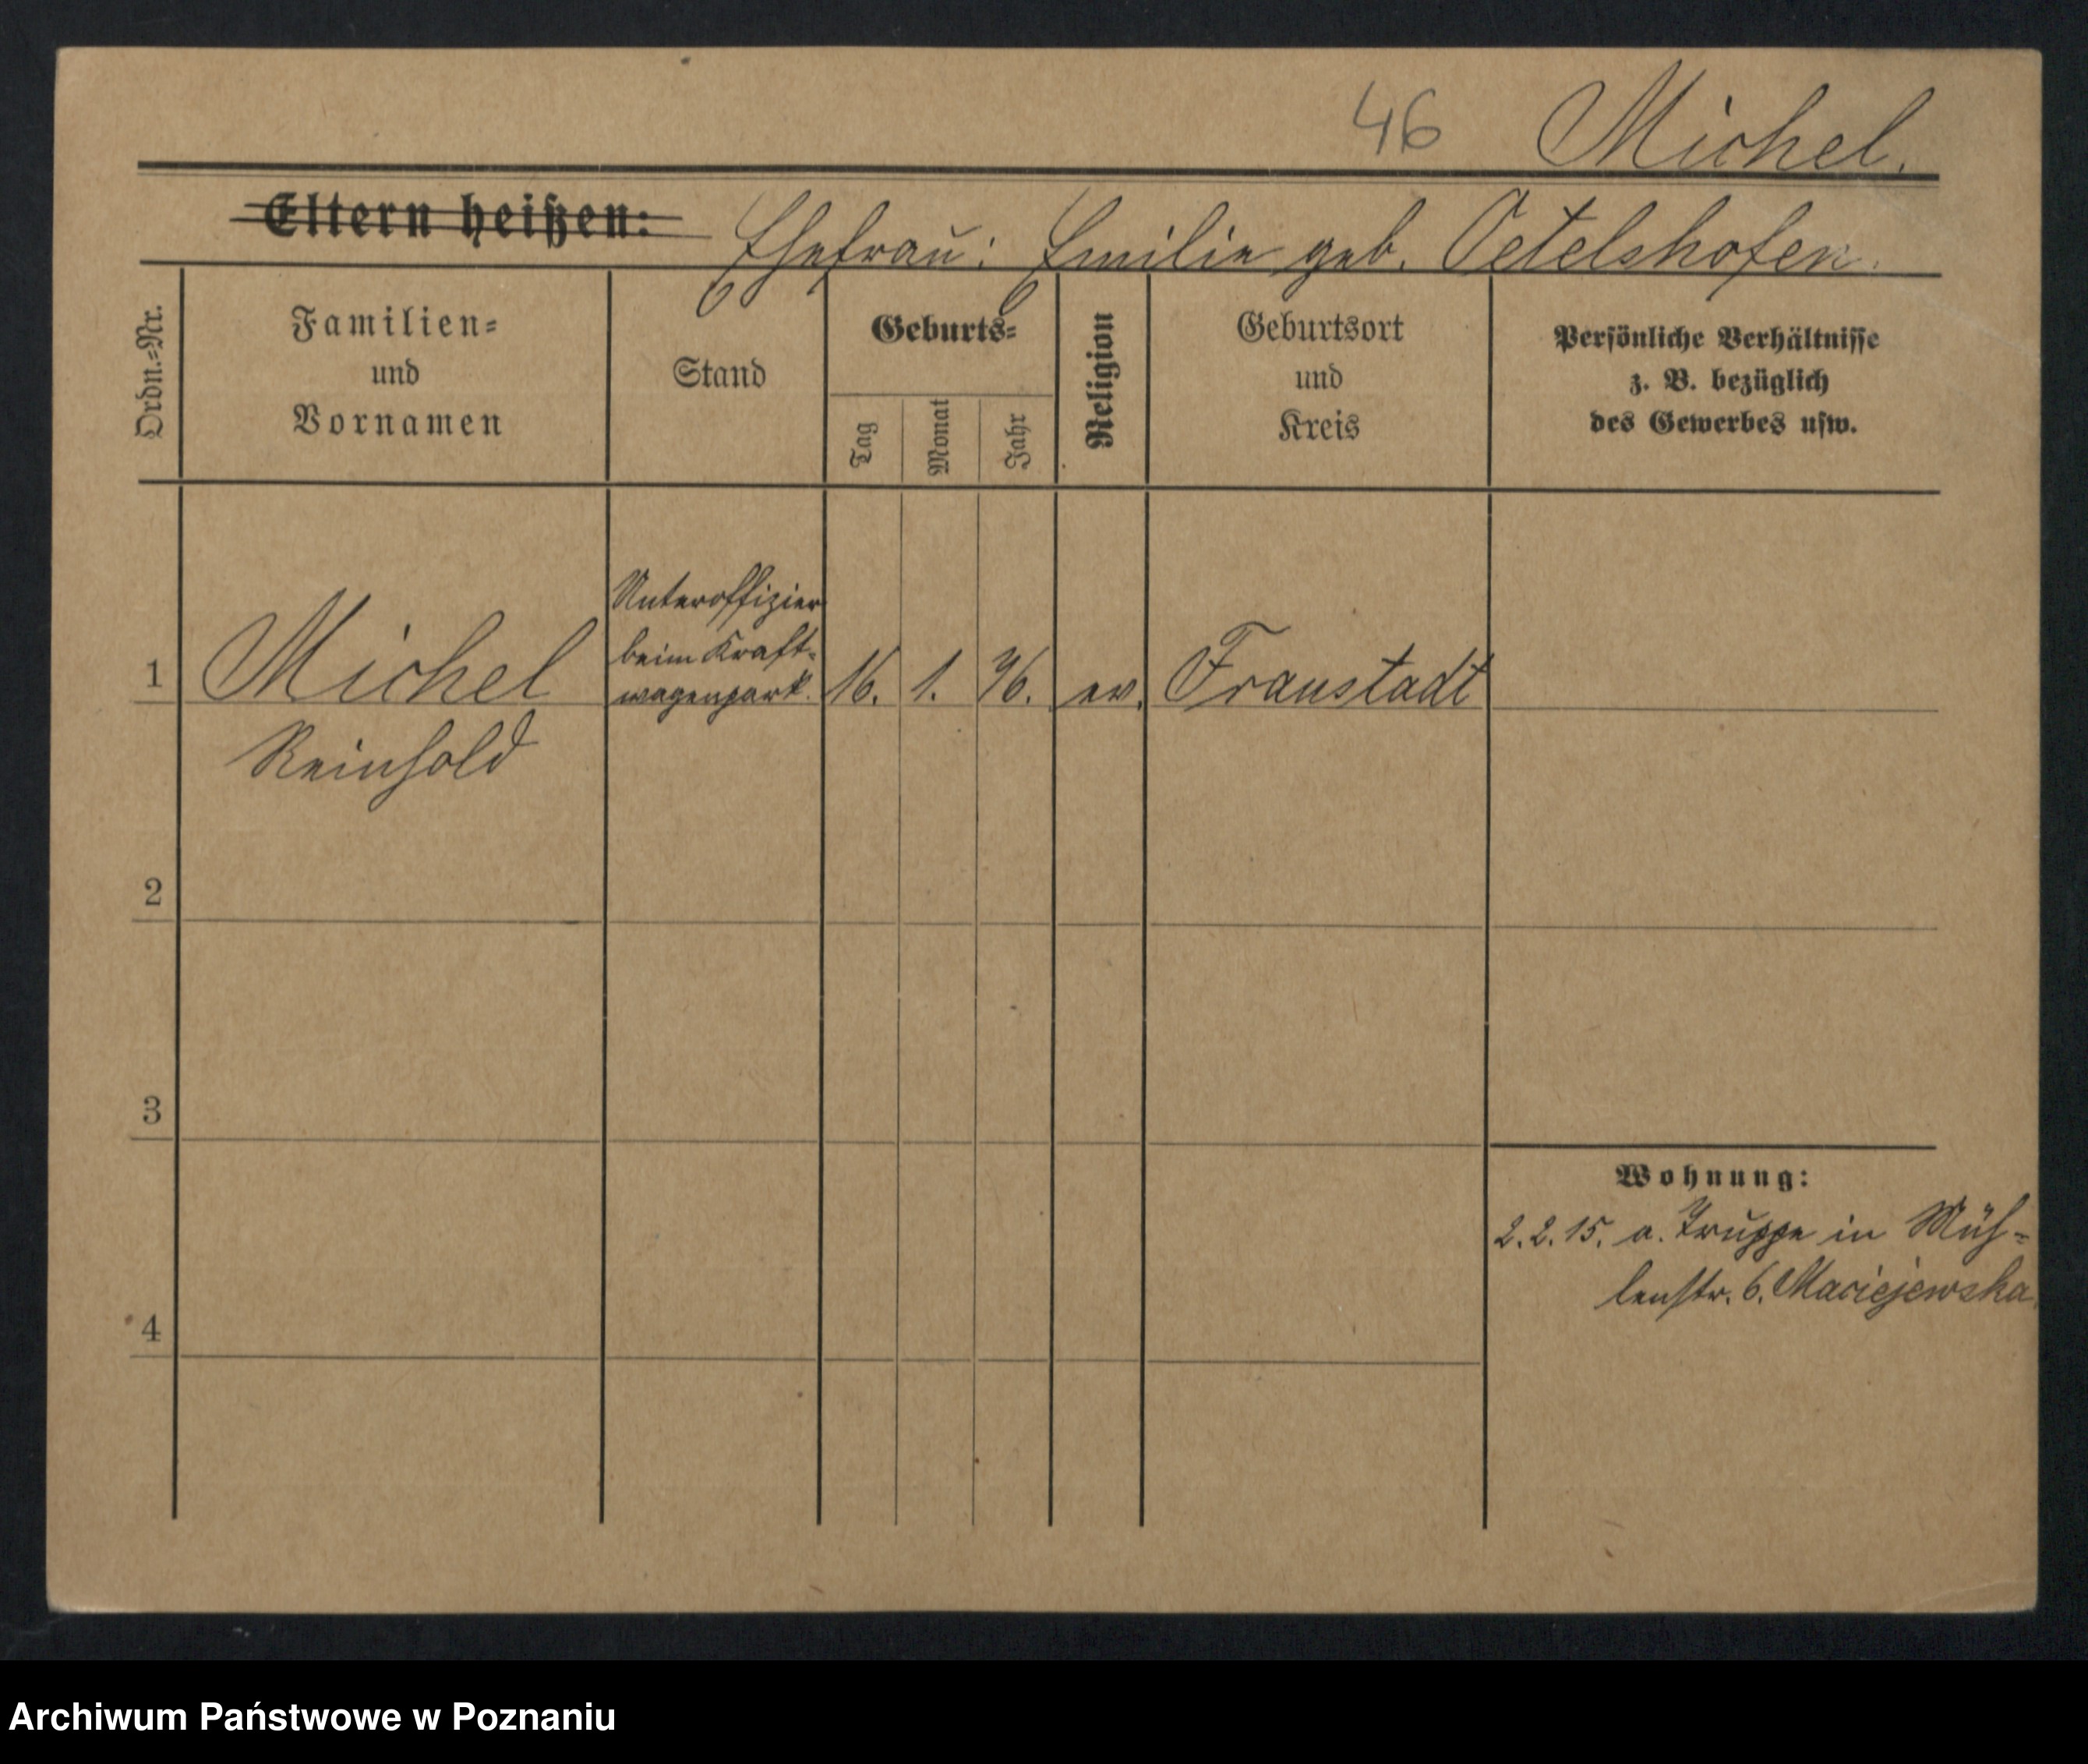 46 Michel.
Eltern heißen: Ehefrau: Emilie geb. Oetelshofen.
Ordn.-Nr.
Familien-
und
Vornamen
Stand
Geburts-
Tag
Monat
Jahr
Religion
Geburtsort
und
Kreis
Persönliche Verhältnisse
z. B. bezüglich
des Gewerbes usw.
Unteroffizier
beim Kraft-
1 Michel wagenpark. 16. 1. 76. ev. Fraustadt
Reinhold
2
3
4
Wohnung:
2.2.15. a. Truppe in Müh-
lenstr. 6. Maciejewska.
Archiwum Państwowe w Poznaniu